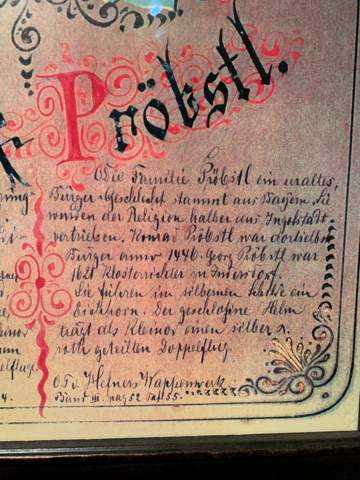 Pröbstl.
Die Familie Pröbstl ein uraltes,
Bürger-Geschlecht stammt aus Bayern. Sie
wurden der Religion halber aus Ingolstadt
vertrieben. Konrad Pröbstl war dortselbst
Bürger anno 1446. Georg Pröbstl war
1621 Klosterrichter in
Sie führen im silbernen Schilde ein
Eichhorn. Der geschlossne Helm
trägt als Kleinod einen silber u.
roth geteilten Doppelflug.
O. T. v. Hefners Wappenwerk
Band III. pag 52 Taf 55.